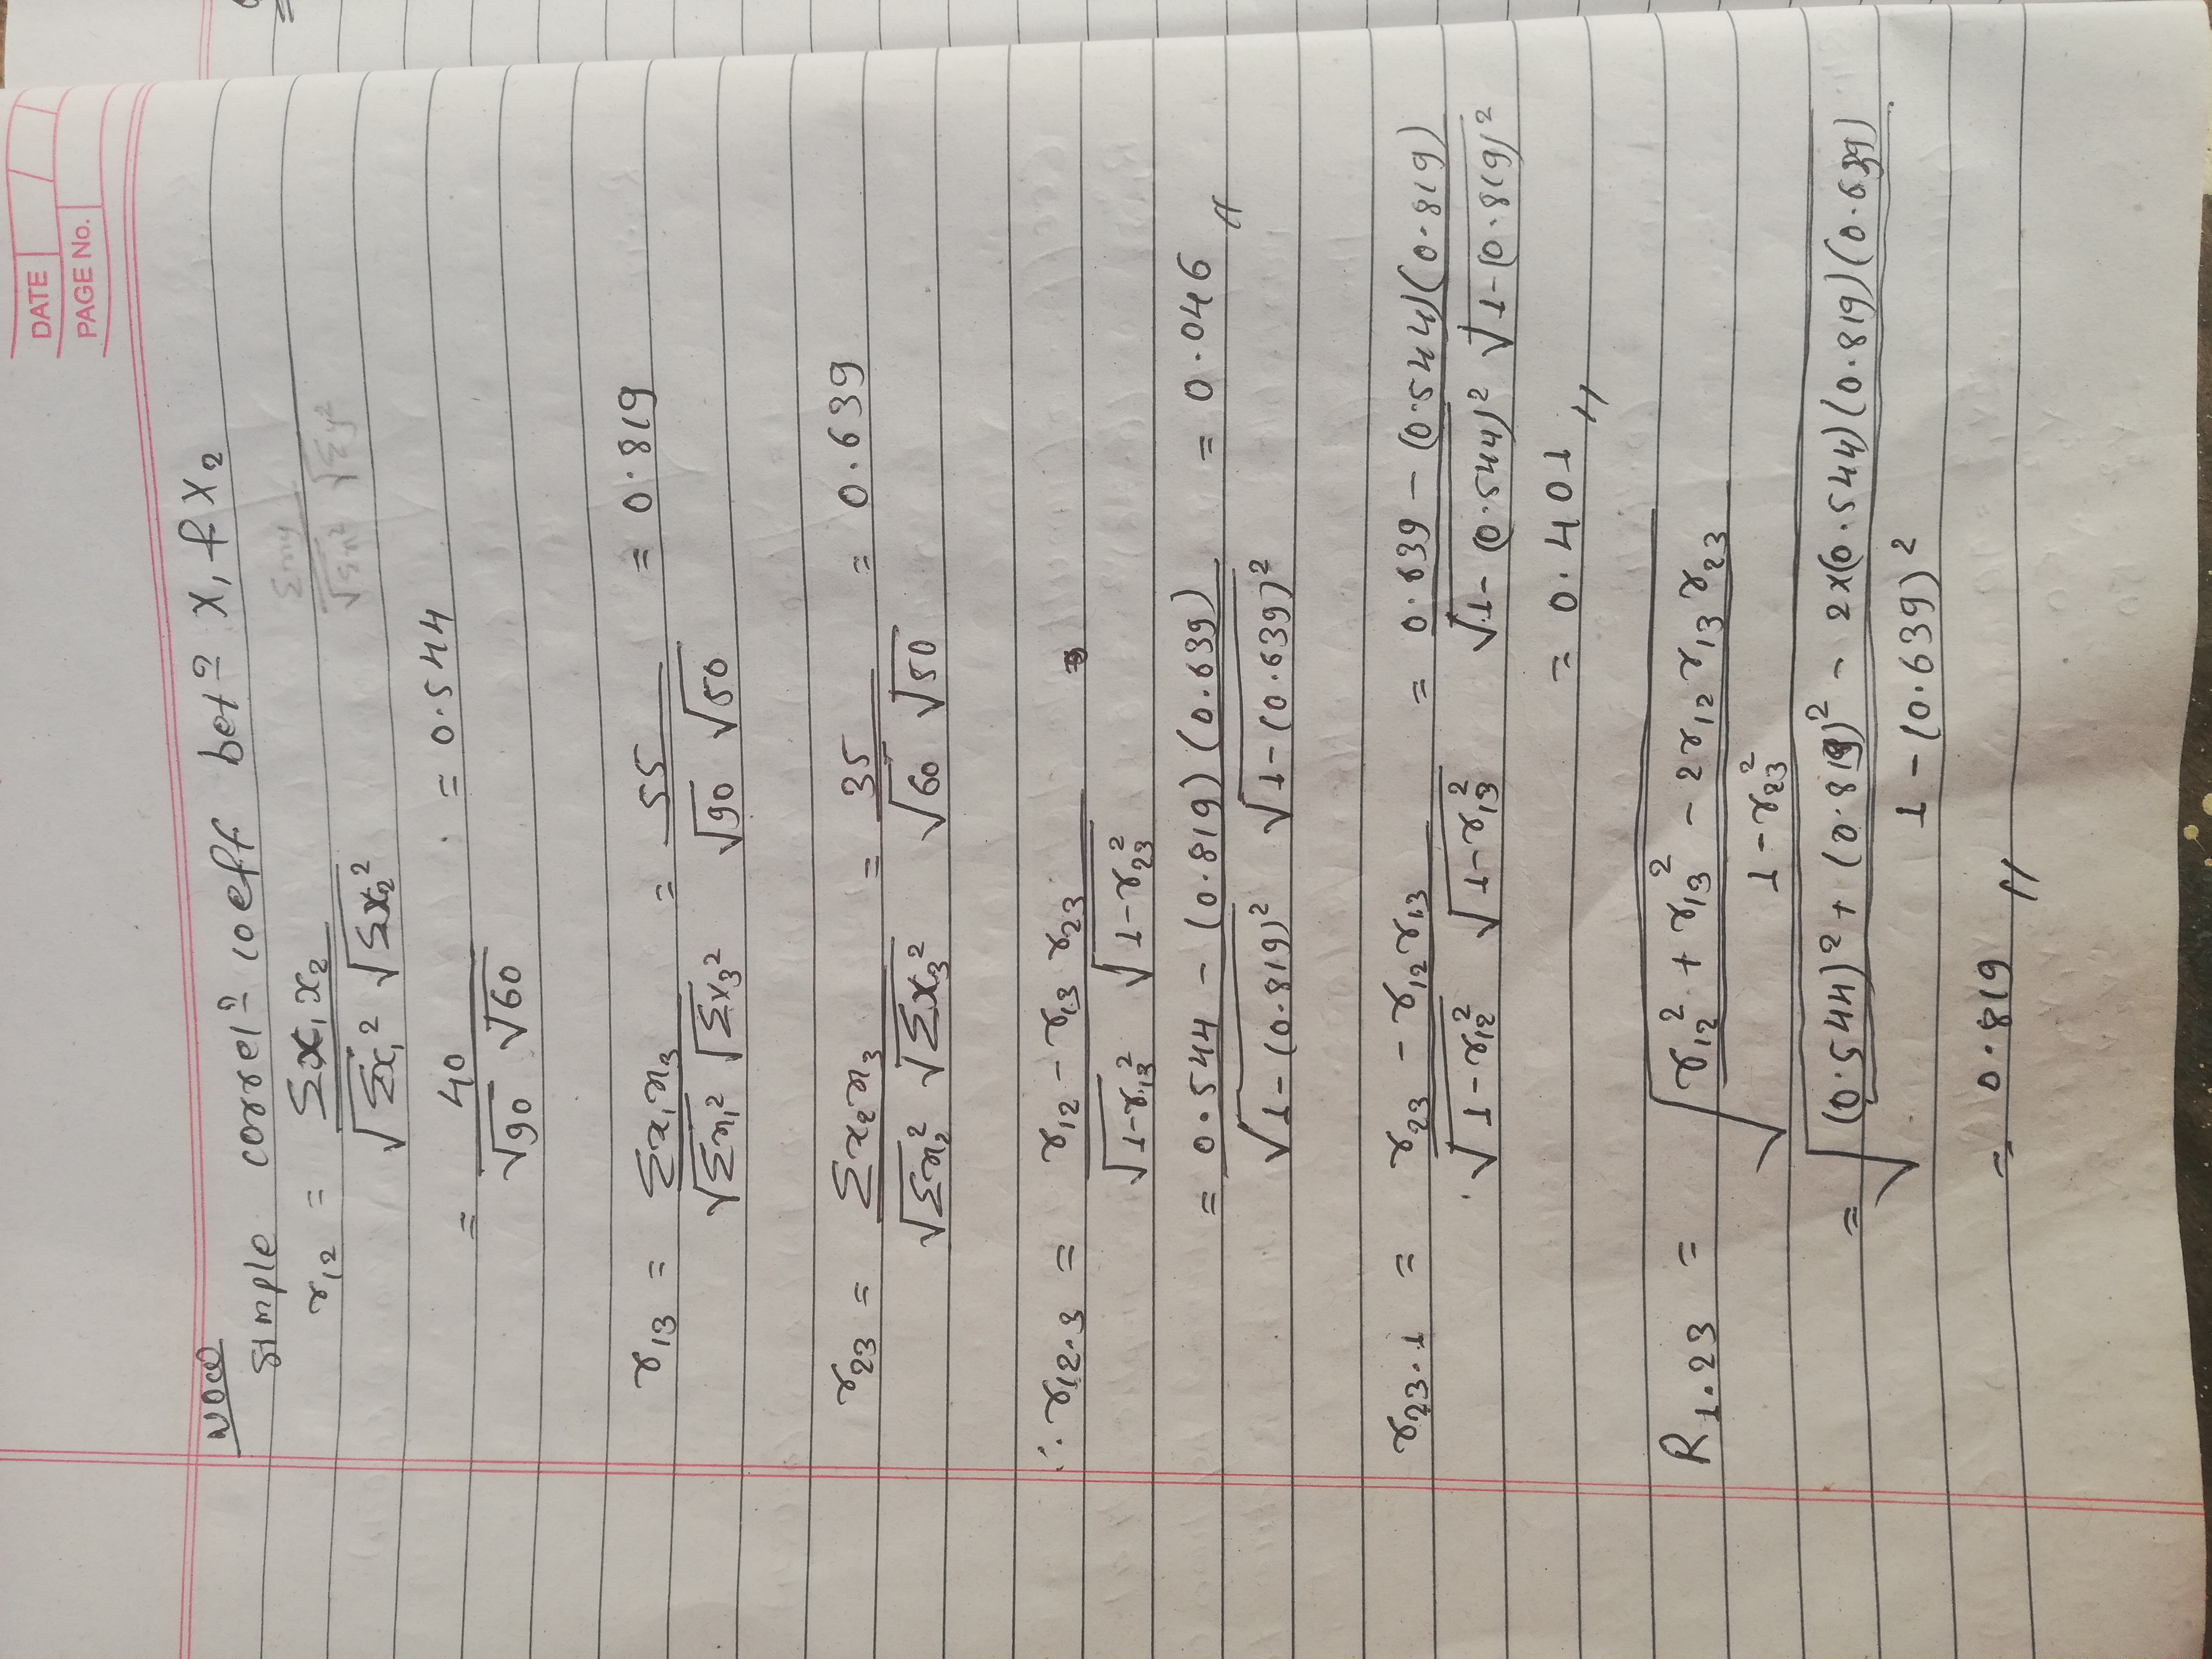 DATE
PAGE No.
NOW
simple correlⁿ coeff betⁿ X₁ & X₂
r₁₂ = Σx₁x₂ / √Σx₁² √Σx₂²
Σxy / √Σx² √Σy²
= 40 / √90 √60 = 0.544
r₁₃ = Σx₁x₃ / √Σx₁² √Σx₃² = 55 / √90 √50 = 0.819
r₂₃ = Σx₂x₃ / √Σx₂² √Σx₃² = 35 / √60 √50 = 0.639
∴ r₁₂.₃ = r₁₂ - r₁₃ r₂₃ / √1-r₁₃² √1-r₂₃²
= 0.544 - (0.819) (0.639) / √1-(0.819)² √1-(0.639)² = 0.046 //
r₂₃.₁ = r₂₃ - r₁₂ r₁₃ / √1-r₁₂² √1-r₁₃² = 0.639 - (0.544)(0.819) / √1-(0.544)² √1-(0.819)²
= 0.401 //
R₁.₂₃ = √(r₁₂² + r₁₃² - 2r₁₂ r₁₃ r₂₃ / 1-r₂₃²)
= √((0.544)² + (0.819)² - 2×(0.544)(0.819)(0.639) / 1-(0.639)²)
= 0.819 //